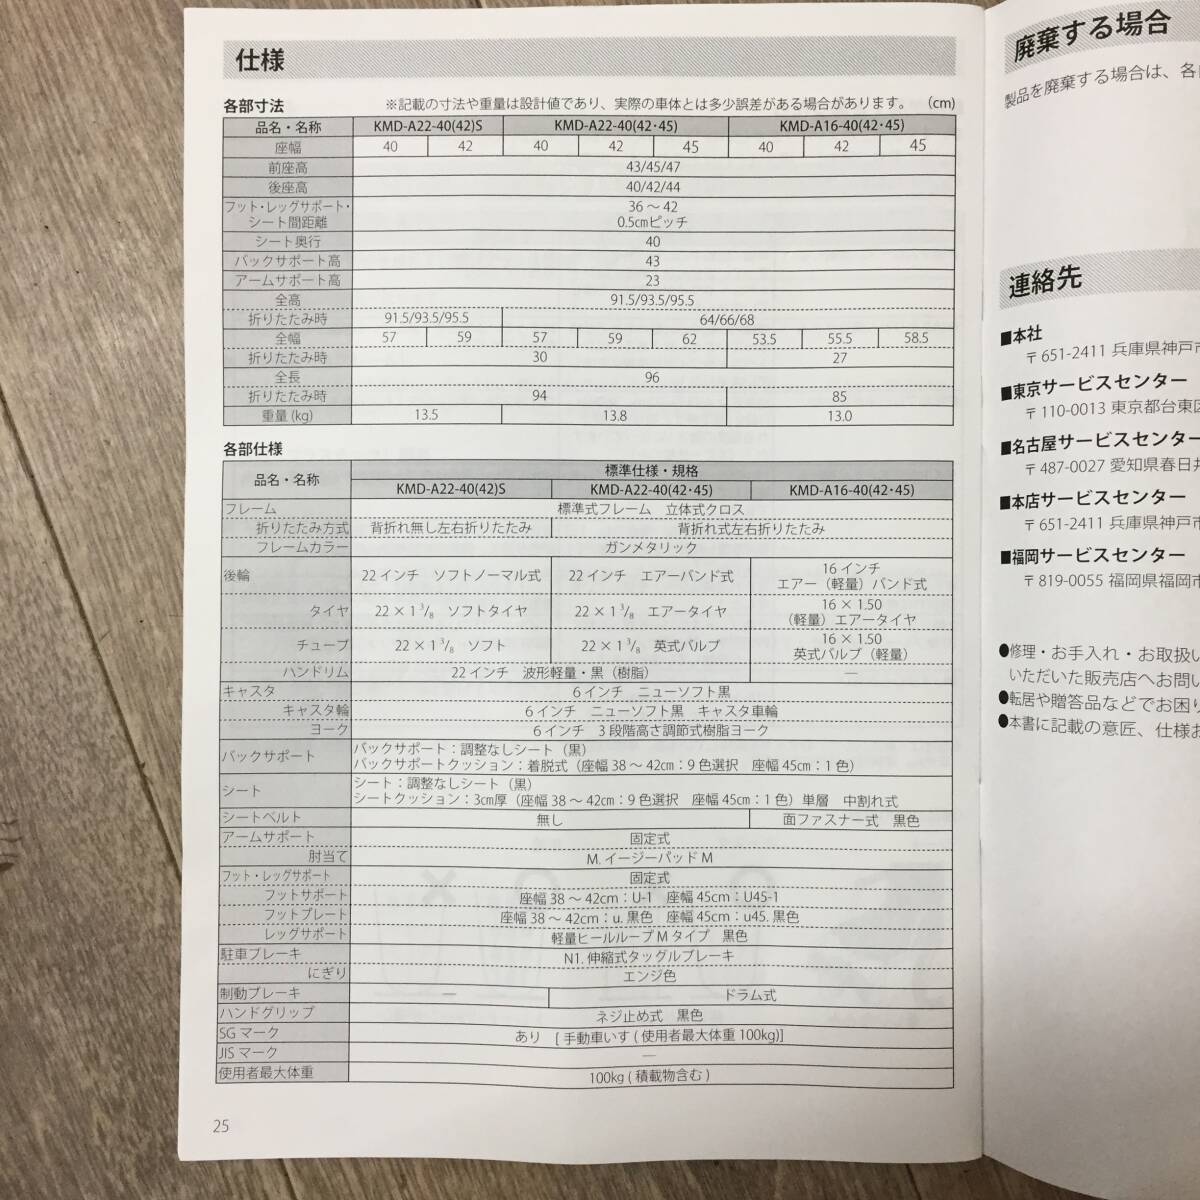 仕様
各部寸法 ※記載の寸法や重量は設計値であり、実際の車体とは多少誤差がある場合があります。 (cm)
品名・名称 KMD-A22-40(42)S KMD-A22-40(42・45) KMD-A16-40(42・45)
座幅 40 42 40 42 45 40 42 45
前座高 43/45/47
後座高 40/42/44
フット・レッグサポート・
シート間距離
36～42
0.5cmピッチ
シート奥行 40
バックサポート高 43
アームサポート高 23
全高 91.5/93.5/95.5
折りたたみ時 91.5/93.5/95.5 64/66/68
全幅 57 59 57 59 62 53.5 55.5 58.5
折りたたみ時 30 27
全長 96
折りたたみ時 94 85
重量(kg) 13.5 13.8 13.0
各部仕様
品名・名称 標準仕様・規格
KMD-A22-40(42)S KMD-A22-40(42・45) KMD-A16-40(42・45)
フレーム 標準式フレーム 立体式クロス
折りたたみ方式 背折れ無し左右折りたたみ 背折れ式左右折りたたみ
フレームカラー ガンメタリック
後輪 22インチ ソフトノーマル式 22インチ エアーバンド式 16インチ
エアー（軽量）バンド式
タイヤ 22×1 3/8 ソフトタイヤ 22×1 3/8 エアータイヤ 16×1.50
（軽量）エアータイヤ
チューブ 22×1 3/8 ソフト 22×1 3/8 英式バルブ 16×1.50
英式バルブ（軽量）
ハンドリム 22インチ 波形軽量・黒（樹脂） —
キャスタ 6インチ ニューソフト黒
キャスタ輪 6インチ ニューソフト黒 キャスタ車輪
ヨーク 6インチ 3段階高さ調節式樹脂ヨーク
バックサポート バックサポート：調整なしシート（黒）
バックサポートクッション：着脱式（座幅38～42cm：9色選択 座幅45cm：1色）
シート シート：調整なしシート（黒）
シートクッション：3cm厚（座幅38～42cm：9色選択 座幅45cm：1色）単層 中割れ式
シートベルト 無し 面ファスナー式 黒色
アームサポート 固定式
肘当て M.イージーパッドM
フット・レッグサポート 固定式
フットサポート 座幅38～42cm：U-1 座幅45cm：U45-1
フットプレート 座幅38～42cm：u.黒色 座幅45cm：u45.黒色
レッグサポート 軽量ヒールループMタイプ 黒色
駐車ブレーキ N1.伸縮式タッグルブレーキ
にぎり エンジ色
制動ブレーキ — ドラム式
ハンドグリップ ネジ止め式 黒色
SGマーク あり [手動車いす(使用者最大体重100kg)]
JISマーク —
使用者最大体重 100kg(積載物含む)
25
廃棄する場合
製品を廃棄する場合は、各
連絡先
■本社
〒651-2411 兵庫県神戸市
■東京サービスセンター
〒110-0013 東京都台東区
■名古屋サービスセンター
〒487-0027 愛知県春日井
■本店サービスセンター
〒651-2411 兵庫県神戸市
■福岡サービスセンター
〒819-0055 福岡県福岡市
●修理・お手入れ・お取扱い
いただいた販売店へお問い
●転居や贈答品などでお困り
●本書に記載の意匠、仕様お